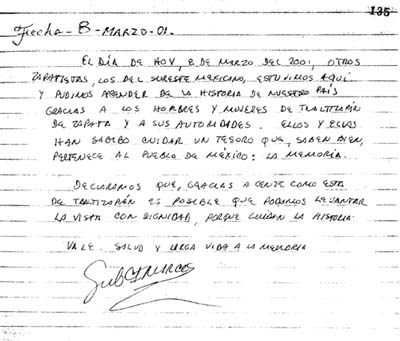 135
Fecha - 8 - MARZO - 01.
EL DÍA DE HOY, 8 DE MARZO DEL 2001, OTROS
ZAPATISTAS, LOS DEL SURESTE MEXICANO, ESTUVIMOS AQUÍ
Y PUDIMOS APRENDER DE LA HISTORIA DE NUESTRO PAÍS
GRACIAS A LOS HOMBRES Y MUJERES DE TLALTIZAPÁN
DE ZAPATA Y A SUS AUTORIDADES. ELLOS Y ELLAS
HAN SABIDO CUIDAR UN TESORO QUE, SABEN BIEN,
PERTENECE AL PUEBLO DE MÉXICO: LA MEMORIA.
DECLARAMOS QUE, GRACIAS A GENTE COMO ESTA
DE TLALTIZAPÁN ES POSIBLE QUE PODAMOS LEVANTAR
LA VISTA CON DIGNIDAD, PORQUE CUIDAN LA HISTORIA.
VALE. SALUD Y LARGA VIDA A LA MEMORIA
SubCMarcos